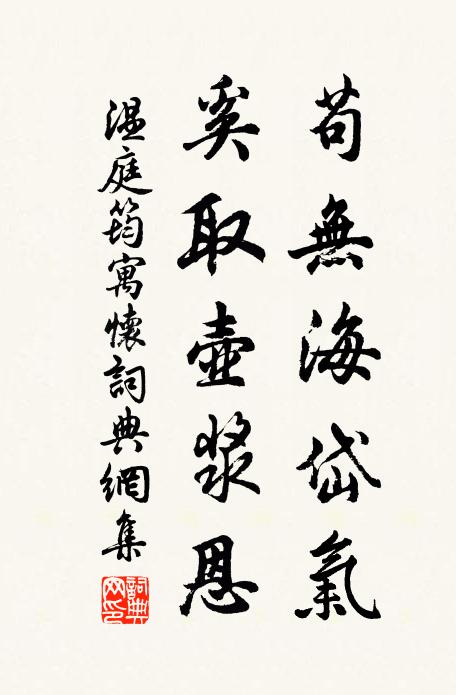 苟無海岱氣
奚取壺漿恩
溫庭筠寓懷詞典網集
詞典網印